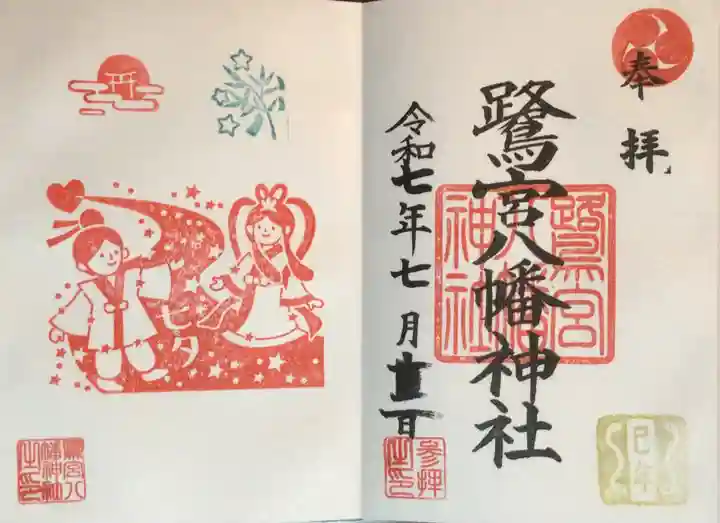 奉拝
鷺宮八幡神社
令和七年七月
鷺宮八幡神社
参拝之印
巳年
七夕
鷺宮八幡神社之印